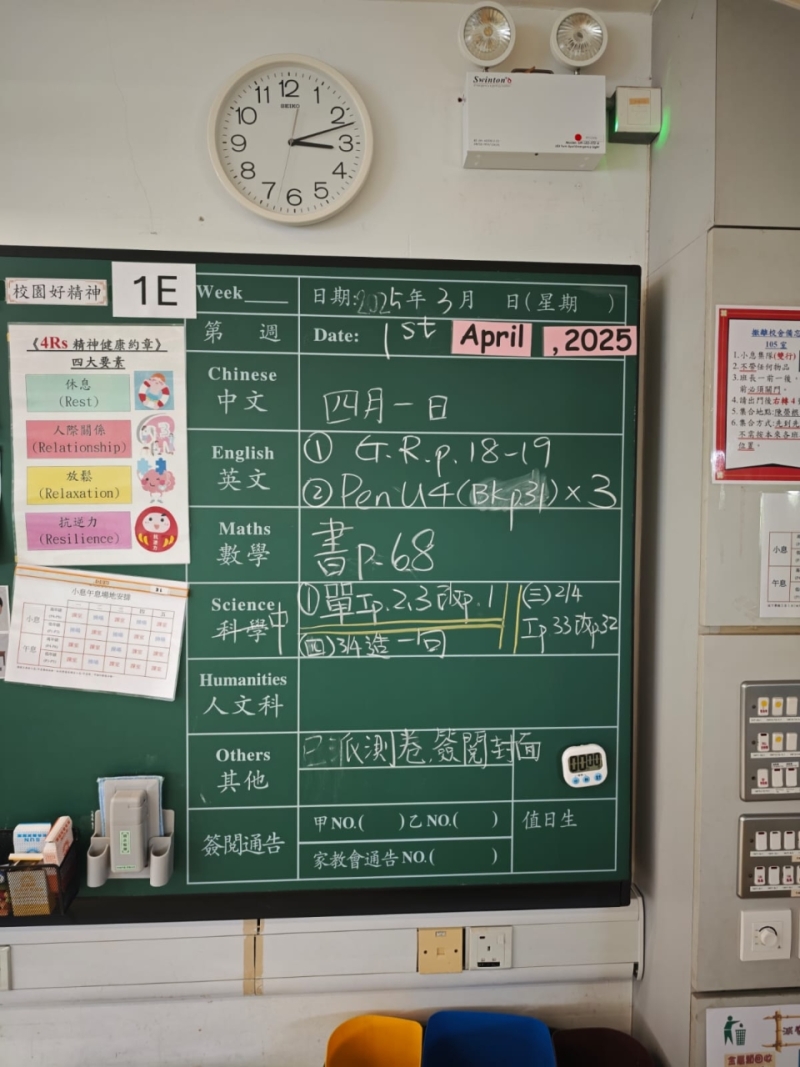 12
1
2
3
4
5
6
7
8
9
10
11
SEIKO
Swinton's
校園好精神
1E
《4Rs 精神健康約章》
四大要素
休息
(Rest)
人際關係
(Relationship)
放鬆
(Relaxation)
抗逆力
(Resilience)
小息午息場地安排
小息
午息
Week
日期:2025年3月 日(星期 )
第 週
Date: 1st April , 2025
Chinese
中文
四月一日
English
英文
① G.R.p.18-19
② Pen U4 (BK p.31) × 3
Maths
數學
書p.68
Science
科學
中
①單Ip.2,3改p.1
(四)3/4造一回
(三)2/4
Ip33改p32
Humanities
人文科
Others
其他
已派測卷,簽閱封面
00:00
簽閱通告
甲NO.( )乙NO.( )
家教會通告NO.( )
值日生
撤離校舍備忘
105 室
1.小息集隊(雙行)
2.不帶任何物品
3.班長一前一後,
前必須關門。
4.請出門後右轉
5.集合地點:
6.集合方式:先到先
不需按本來各班
位置。
小息
午息